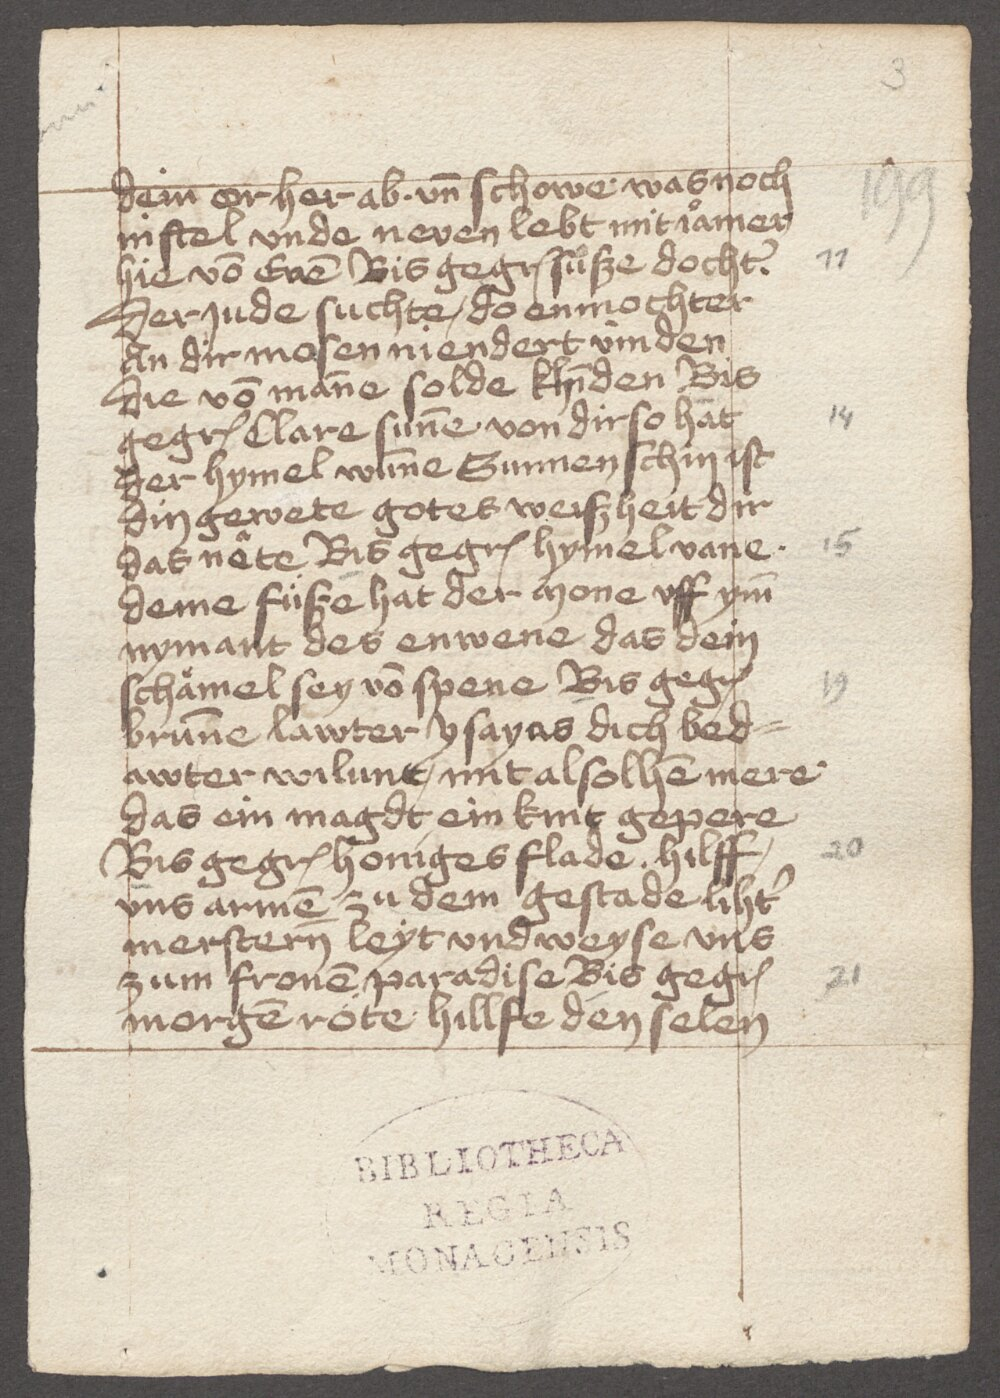 3
199
dein or her ab. vn̄ schowe was noch
niftel vnde neven lebt mit iåmer
hie vō Evē Bis gegr suͤsze docht̕. 11
Der jude suchte / do enmochter
An dir mosen niendert vinden
Die vō man̄e solde kīnden Bis
gegr Clare sun̄e von dir so hat 14
der hymel wūne Sunnen schin ist
din gewete gotes weiszheit dir
das nête Bis gegr hymel vane. 15
deine füsze hat der mone vff ym̄
nymant des enwene das dein
schämel sey vō spene Bis gegr 19
brun̄e lawter ysayas dich bed=
awter wilunt / mit alsolhē mere
das ein magdt ein kint gepere
Bis gegr honiges flade. hilff / 20
vns armē zu dem gestade liht̕
merstern leyt vnd weyse vns
zum fronē paradise Bis gegr 21
morgē röte hillfe den selen
BIBLIOTHECA
REGIA
MONACENSIS